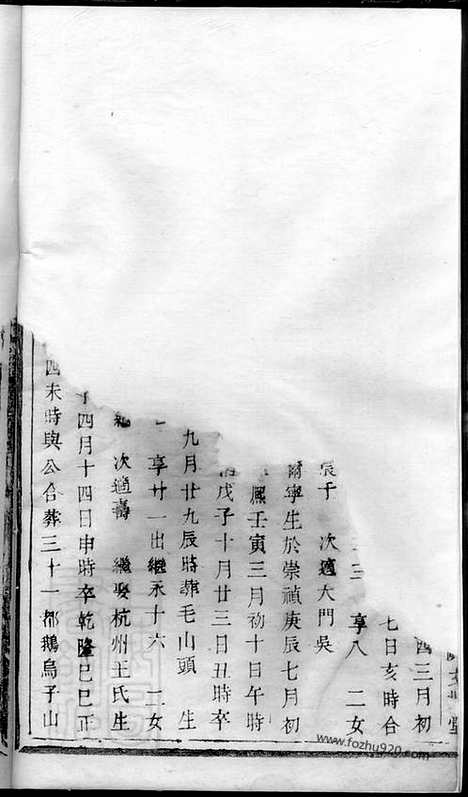 四三月初
七日亥時合
三 享八 二女
張于 次適大門吳
爾寧生於崇禎庚辰七月初
熙壬寅三月初十日午時
戊子十月廿三日丑時卒
九月廿九辰時葬毛山頭 生
享廿一出繼永十六 二女
次適壽 繼娶杭州王氏生
四月十四日申時卒乾隆己巳正
四未時與公合葬三十一都鵝烏子山
www.fozhu920.com